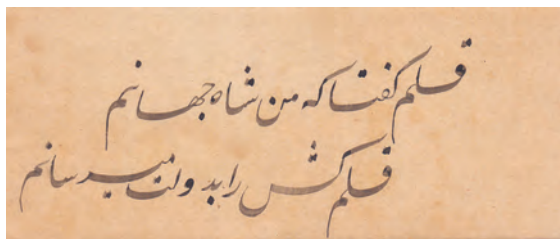 قلم گفتا که من شاه جهانم
قلم کش را بدولت میرسانم